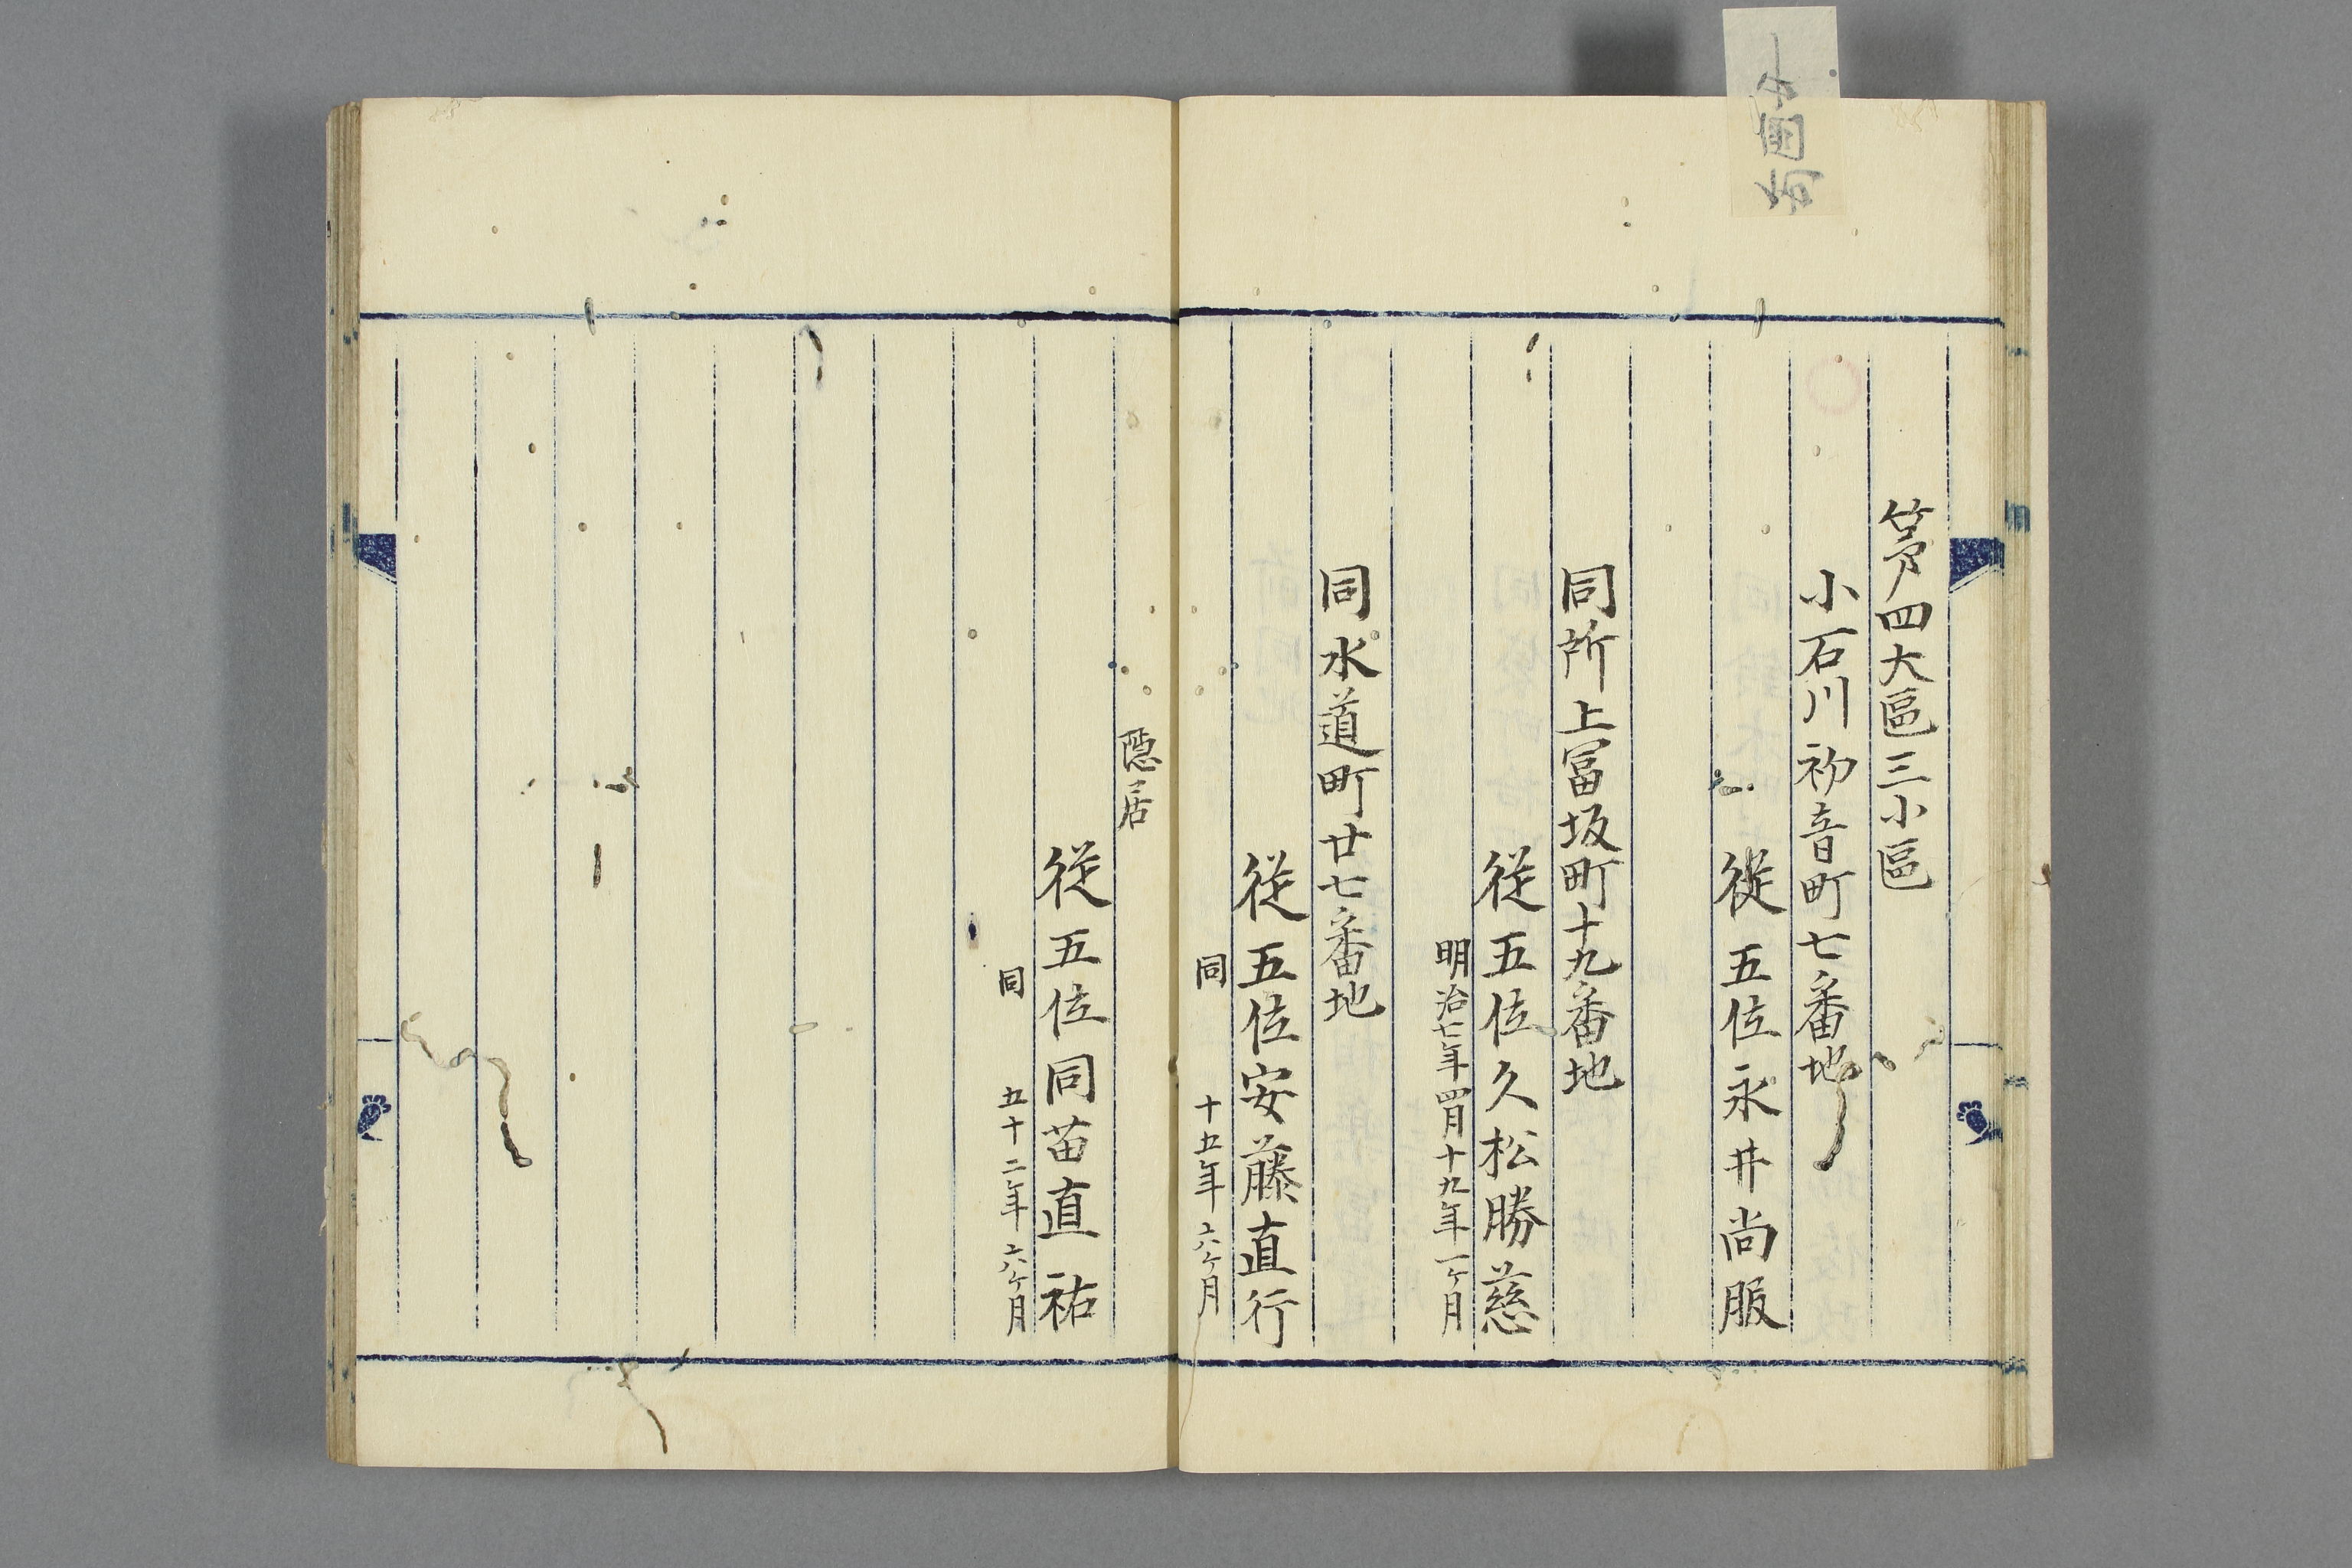 第四大區三小區
小石川初音町七番地
従五位永井尚服
同所上冨坂町十九番地
従五位久松勝慈
明治七年四月十九年一ケ月
同水道町廿七番地
従五位安藤直行
同 十五年六ケ月
隠居
従五位同苗直祐
同 五十二年六ケ月